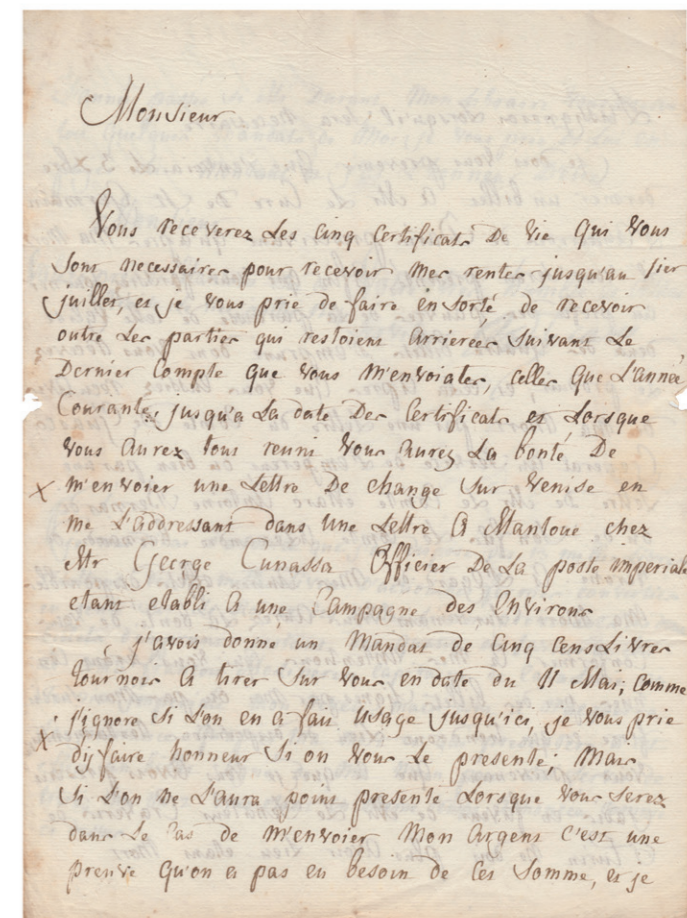 Monsieur
Vous receverez Les Cinq Certificats De vie Qui Vous
Sont necessaires pour recevoir Mes rentes jusqu'au 1ier
juillet, et je vous prie de faire en sorte de recevoir
outre Les parties qui restoient Arrierées Suivant Le
Dernier Compte que Vous M'envoiates, celles Que L'année
Courante, jusqu'a La date Des Certificats et Lorsque
Vous Aurez tous reuni Vous Aurez La bonté De
m'envoier une Lettre De change Sur Venise en
me L'addressant dans Une Lettre A Mantoue chez
Mr George Cunassa Officier De La poste imperiale
etant etabli A une Campagne des Environs
j'avois donné un Mandat de Cinq Cens Livres
tournois A tirer Sur Vous en date du 11 Mai; comme
j'ignore Si L'on en a fait Usage jusqu'ici, je Vous prie
d'ij faire honneur Si on Vous Le presente; Mais
Si L'on ne L'aura point presenté Lorsque Vous Serez
dans Le Cas de M'envoier Mon Argent C'est une
preuve Qu'on a pas eu besoin de Ces Somme, et je